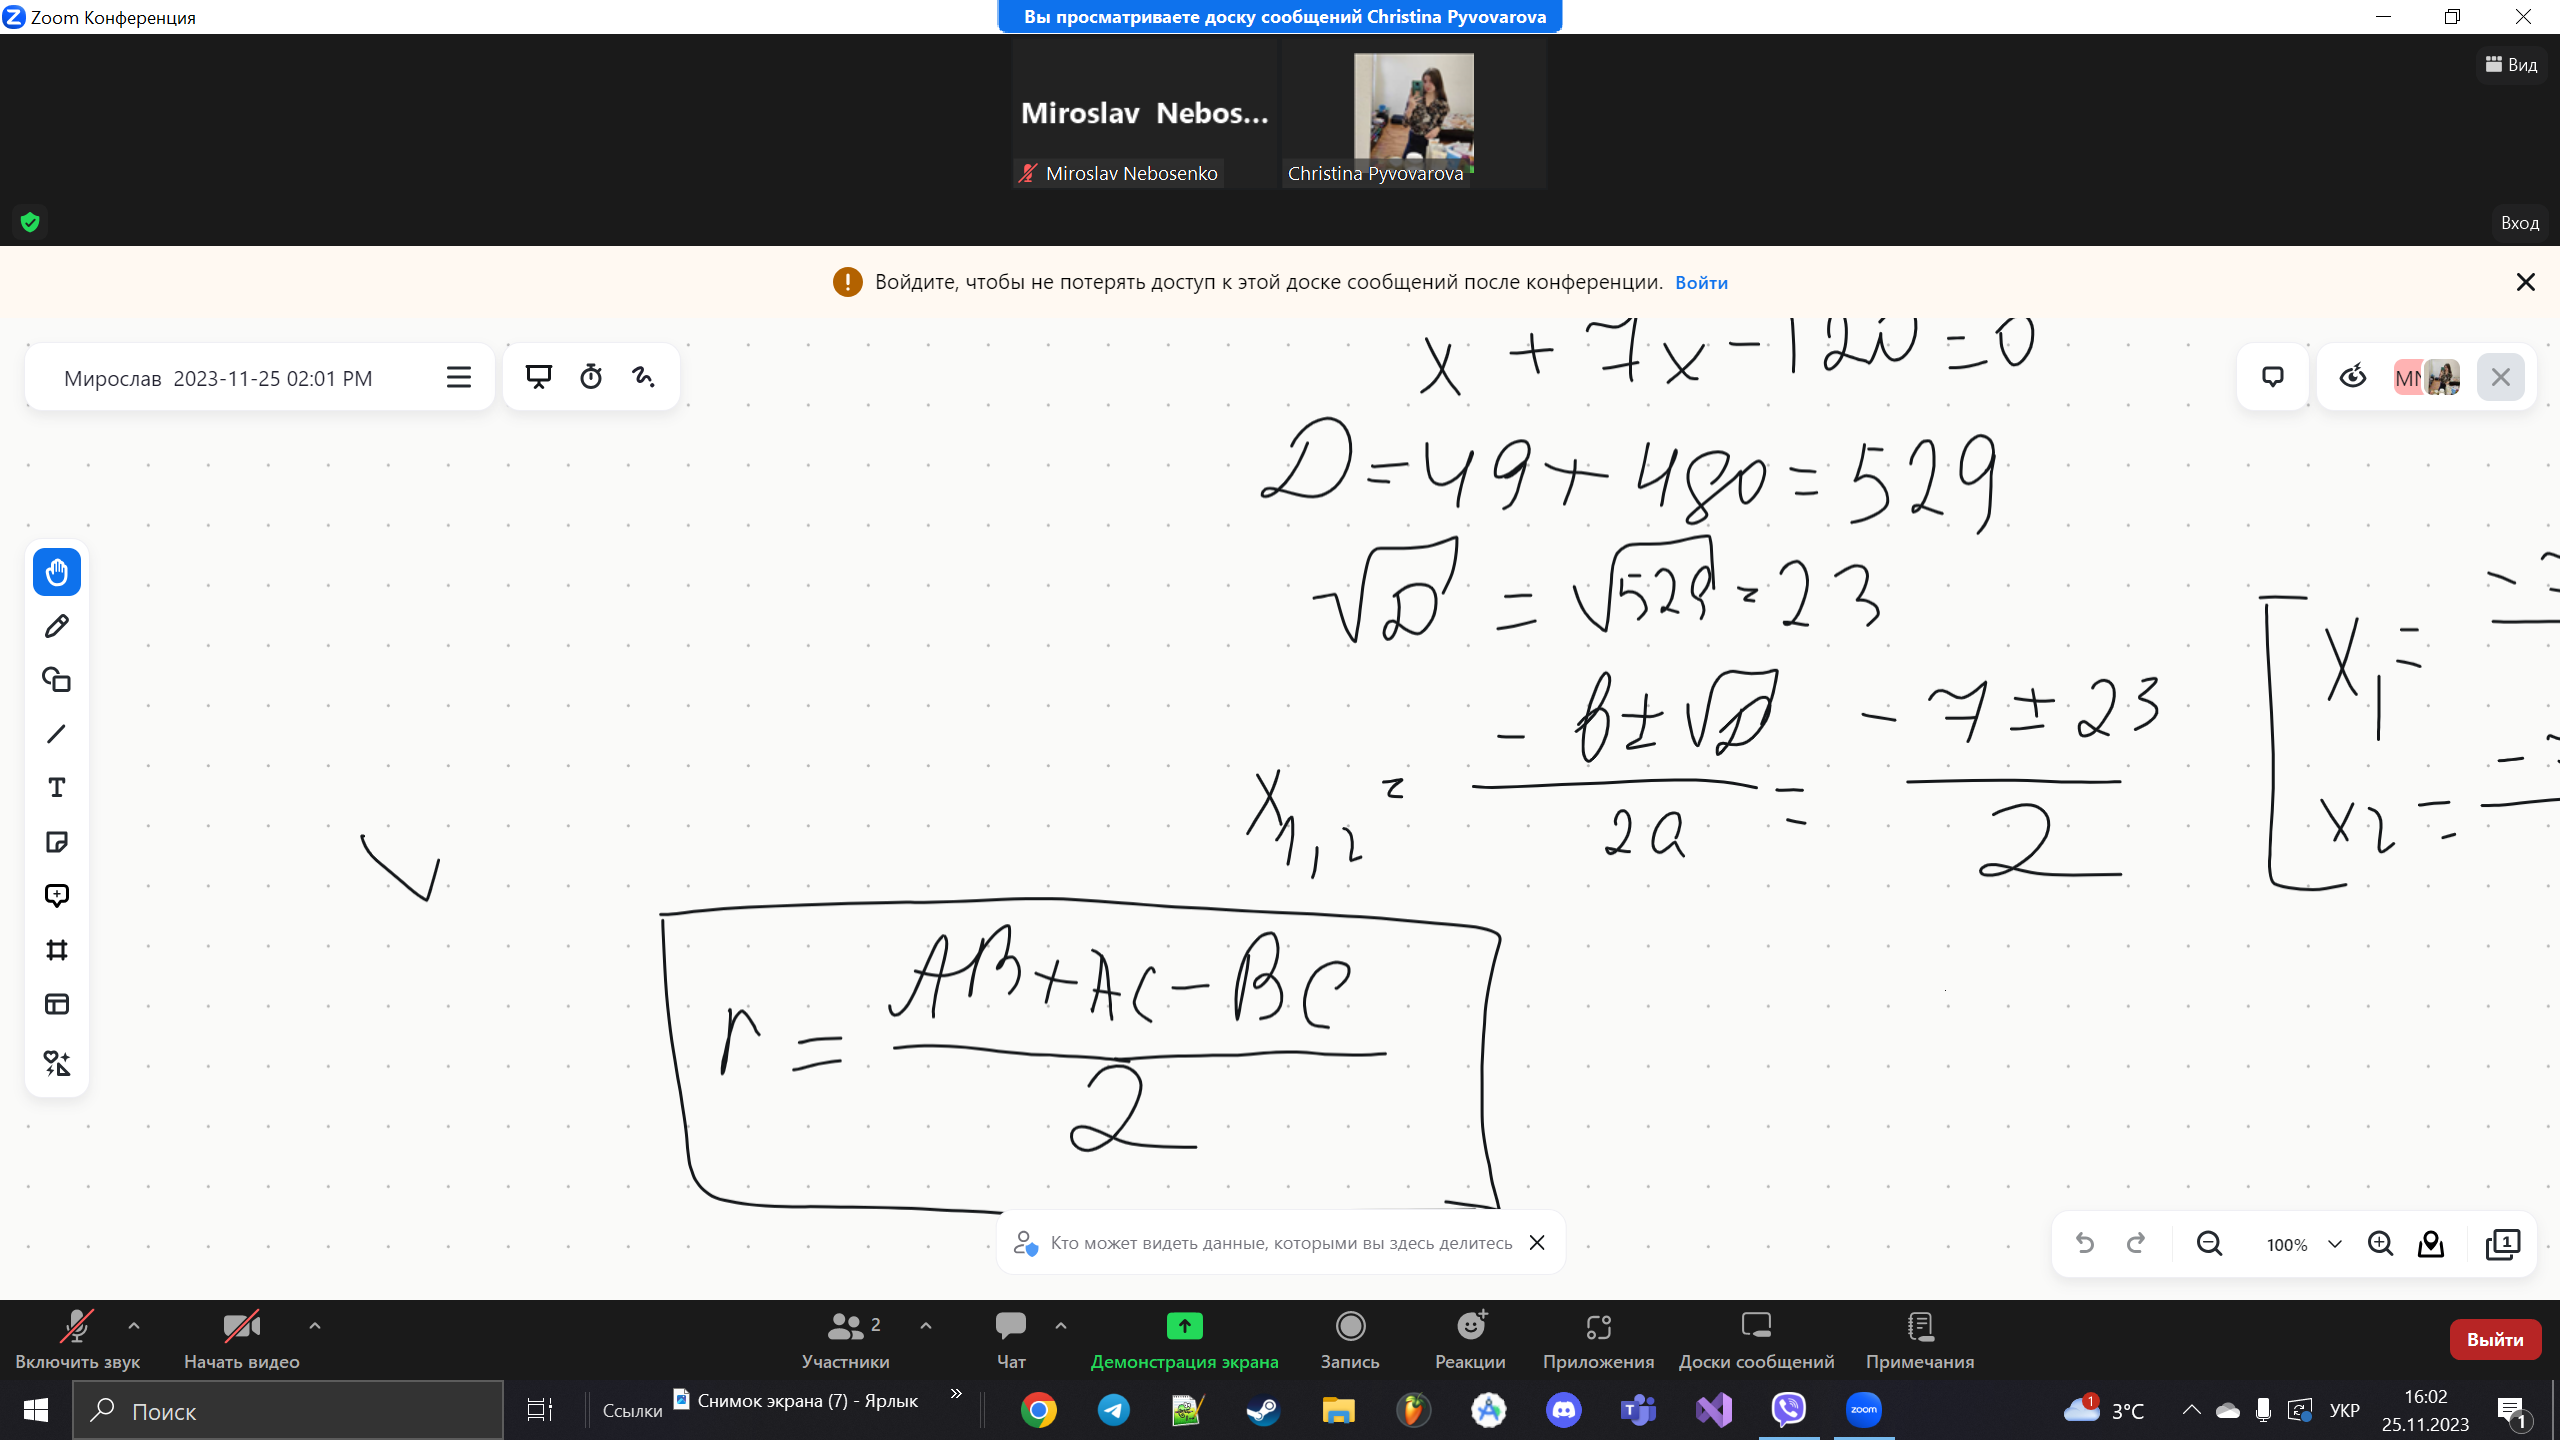 Zoom Конференция
Вы просматриваете доску сообщений Christina Pyvovarova
Вид
Miroslav Nebos...
Miroslav Nebosenko
Christina Pyvovarova
Вход
Войдите, чтобы не потерять доступ к этой доске сообщений после конференции. Войти
Мирослав 2023-11-25 02:01 PM
x + 7x - 120 = 0
D = 49 + 480 = 529
√D = √529 = 23
x1,2 = (-b ± √D) / 2a = (-7 ± 23) / 2
x1 =
x2 =
r = (AB + AC - BC) / 2
Кто может видеть данные, которыми вы здесь делитесь
100%
1
Включить звук
Начать видео
Участники 2
Чат
Демонстрация экрана
Запись
Реакции
Приложения
Доски сообщений
Примечания
Выйти
Поиск
Ссылки
Снимок экрана (7) - Ярлык
»
zoom
1
3°C
УКР
16:02
25.11.2023
1